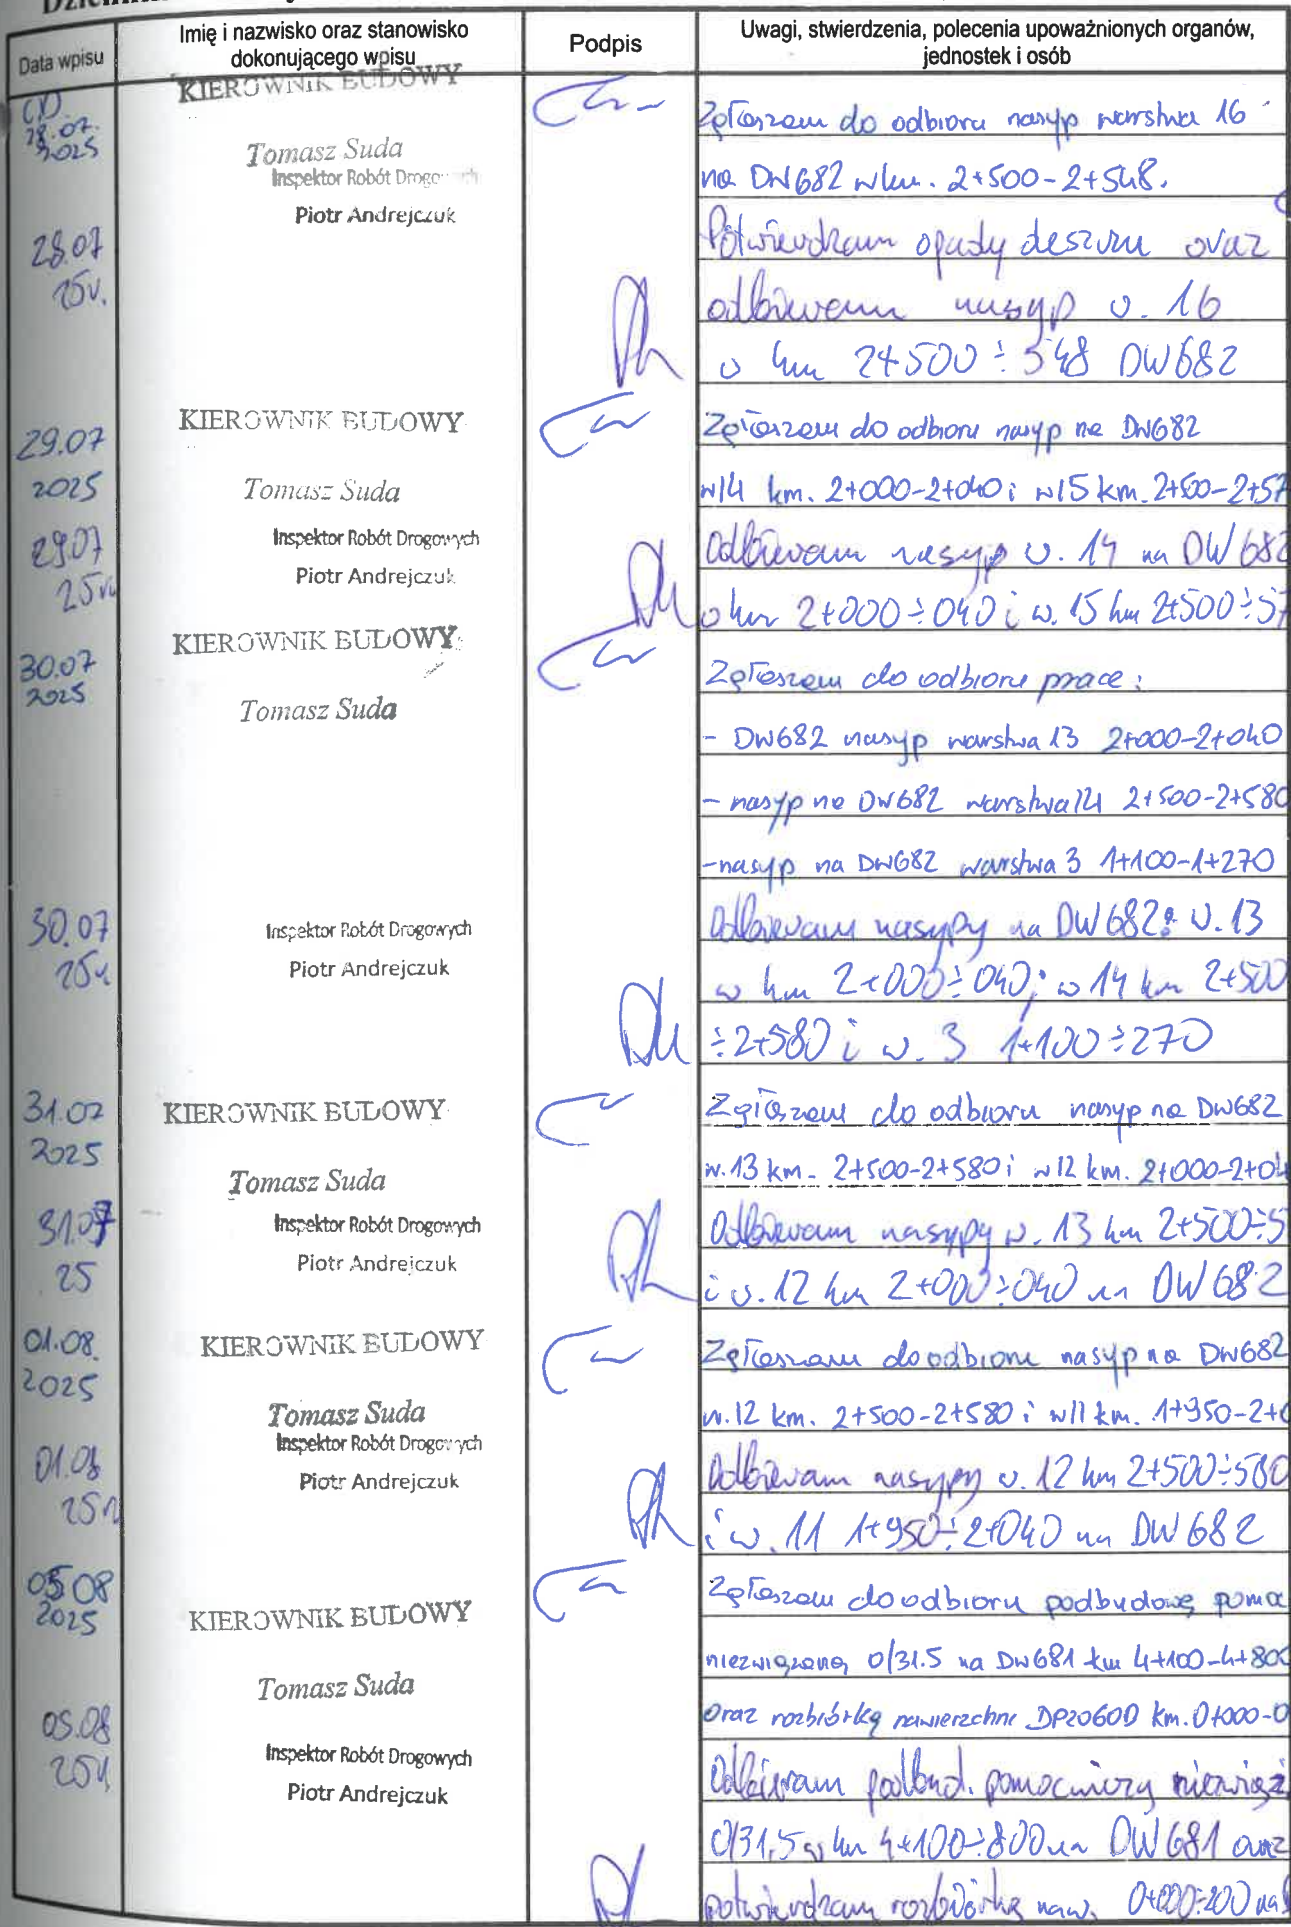 Data wpisu
Imię i nazwisko oraz stanowisko
dokonującego wpisu
Podpis
Uwagi, stwierdzenia, polecenia upoważnionych organów,
jednostek i osób
28.07.
2025
KIEROWNIK BUDOWY
Tomasz Suda
Zgłaszam do odbioru nasyp warstwa 16
na DW682 w km. 2+500-2+548.
28.07
25r.
Inspektor Robót Drogowych
Piotr Andrejczuk
Potwierdzam opady deszczu oraz
odbieram nasyp w. 16
w km 2+500÷548 DW682
29.07
2025
KIEROWNIK BUDOWY
Tomasz Suda
Zgłaszam do odbioru nasyp na DW682
w14 km. 2+000-2+040 i w15 km. 2+500-2+57
29.07
25r.
Inspektor Robót Drogowych
Piotr Andrejczuk
Odbieram nasyp w. 14 na DW 682
w km 2+000÷040 i w. 15 km 2+500÷57
30.07
2025
KIEROWNIK BUDOWY
Tomasz Suda
Zgłaszam do odbioru prace:
- DW682 nasyp warstwa 13 2+000-2+040
- nasyp na DW682 warstwa 14 2+500-2+580
- nasyp na DW682 warstwa 3 1+100-1+270
30.07
25r
Inspektor Robót Drogowych
Piotr Andrejczuk
Odbieram nasypy na DW 682: w. 13
w km 2+000÷040; w 14 km 2+500
÷2+580 i w. 3 1+100÷270
31.07
2025
KIEROWNIK BUDOWY
Tomasz Suda
Zgłaszam do odbioru nasyp na DW682
w. 13 km. 2+500-2+580 i w12 km. 2+000-2+04
31.07
25
Inspektor Robót Drogowych
Piotr Andrejczuk
Odbieram nasypy w. 13 km 2+500÷5
i w. 12 km 2+000÷040 na DW 682
01.08.
2025
KIEROWNIK BUDOWY
Tomasz Suda
Zgłaszam do odbioru nasyp na DW682
w. 12 km. 2+500-2+580 i w11 km. 1+950-2+0
01.08
25r
Inspektor Robót Drogowych
Piotr Andrejczuk
Odbieram nasypy w. 12 km 2+500÷580
i w. 11 1+950÷2+040 na DW 682
05.08
2025
KIEROWNIK BUDOWY
Tomasz Suda
Zgłaszam do odbioru podbudowę pomoc
niezwiązaną 0/31.5 na DW681 km 4+100-4+800
oraz rozbiórkę nawierzchni DP2060D km. 0+000-0
05.08
25r
Inspektor Robót Drogowych
Piotr Andrejczuk
Odbieram podbud. pomocniczą niezwiąz
0/31,5 w km 4+100÷800 na DW 681 oraz
potwierdzam rozbiórkę naw. 0+000÷200 na